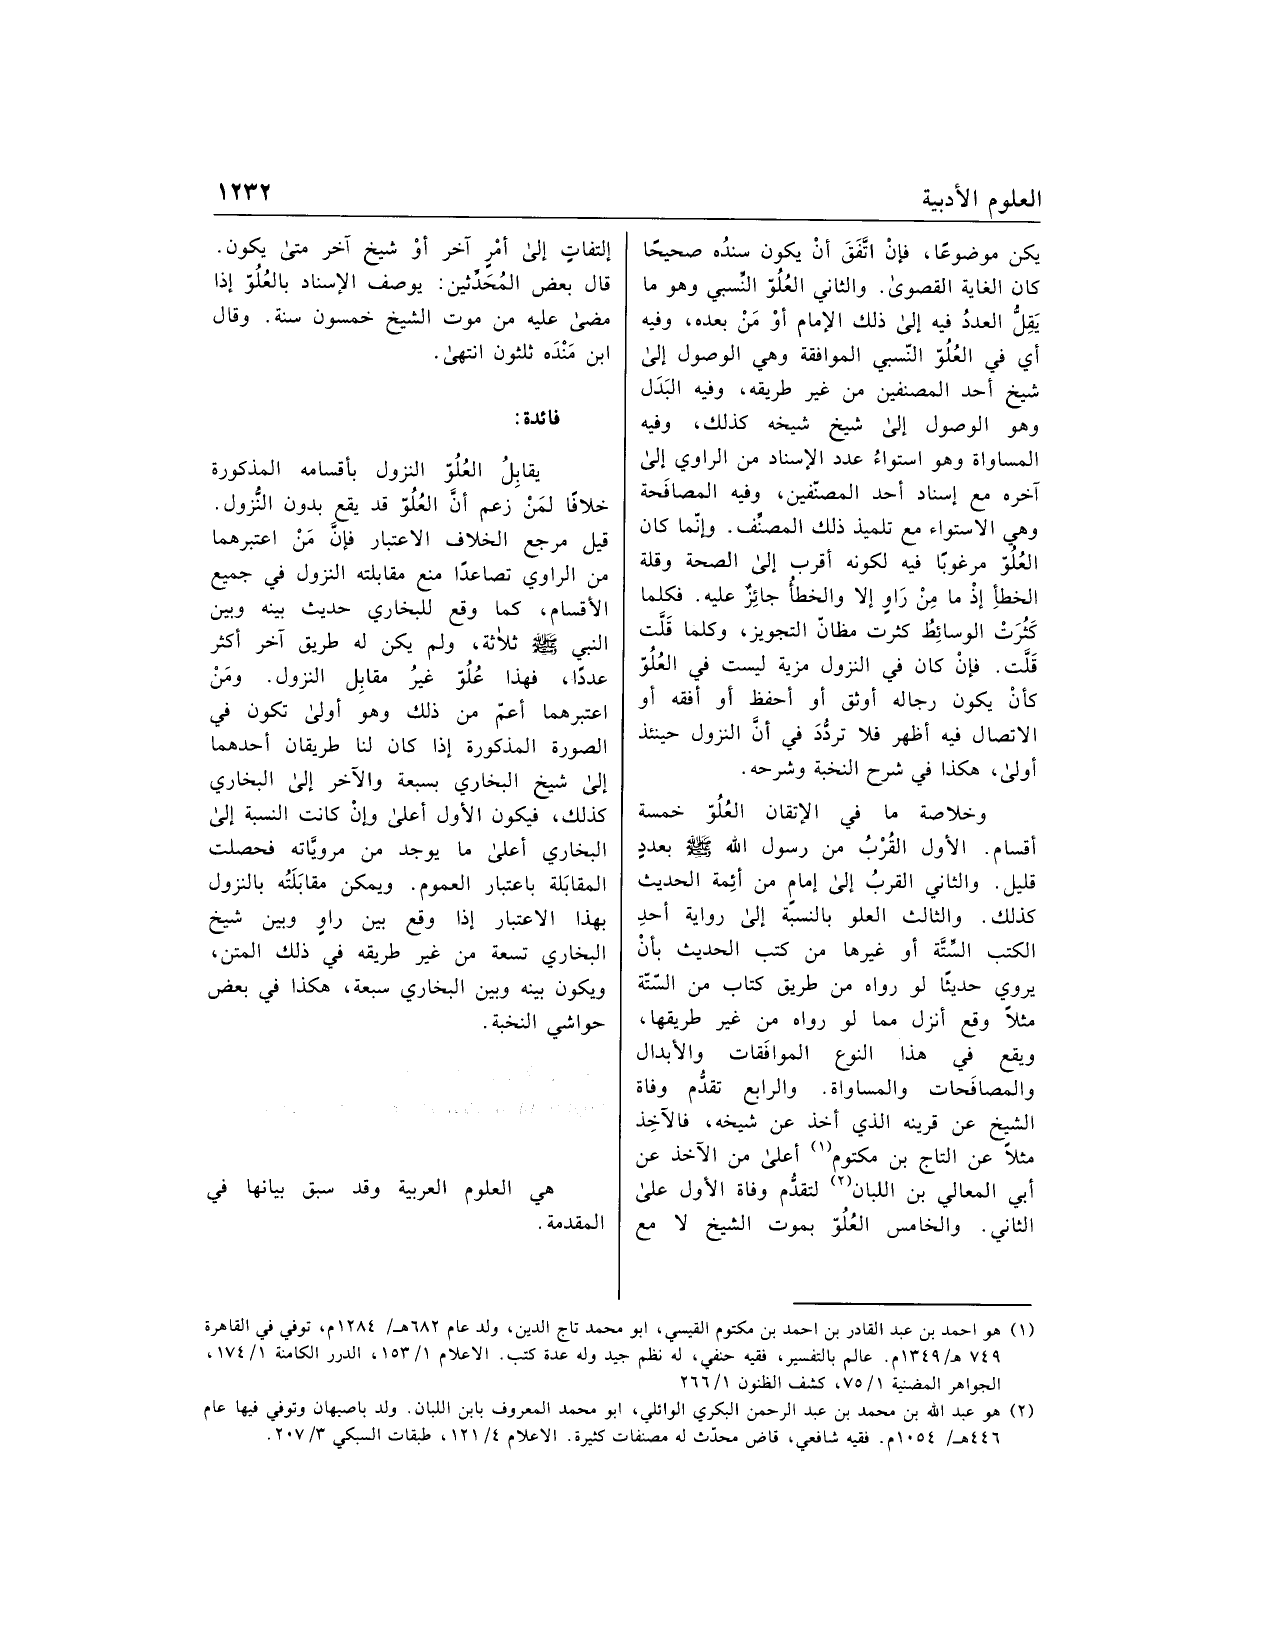 العلوم الأدبية
١٢٣٢
يكن موضوعًا، فإنْ اتَّفَقَ أنْ يكون سندُه صحيحًا
كان الغاية القصوىٰ. والثاني العُلُوّ النِّسبي وهو ما
يَقِلُّ العددُ فيه إلىٰ ذلك الإمام أوْ مَنْ بعده، وفيه
أي في العُلُوّ النّسبي الموافقة وهي الوصول إلىٰ
شيخ أحد المصنفين من غير طريقه، وفيه البَدَل
وهو الوصول إلىٰ شيخ شيخه كذلك، وفيه
المساواة وهو استواءُ عدد الإسناد من الراوي إلىٰ
آخره مع إسناد أحد المصنّفين، وفيه المصافَحة
وهي الاستواء مع تلميذ ذلك المصنِّف. وإنّما كان
العُلُوّ مرغوبًا فيه لكونه أقرب إلىٰ الصحة وقلة
الخطأِ إذْ ما مِنْ رَاوٍ إلا والخطأُ جائِزٌ عليه. فكلما
كَثُرَتْ الوسائِطُ كثرت مظانّ التجويز، وكلما قَلَّت
قَلَّت. فإنْ كان في النزول مزية ليست في العُلُوّ
كأنْ يكون رجاله أوثق أو أحفظ أو أفقه أو
الاتصال فيه أظهر فلا تردُّدَ في أنَّ النزول حينئذ
أولىٰ، هكذا في شرح النخبة وشرحه.
وخلاصة ما في الإتقان العُلُوّ خمسة
أقسام. الأول القُرْبُ من رسول الله ﷺ بعددٍ
قليل. والثاني القربُ إلىٰ إمامٍ من أئِمة الحديث
كذلك. والثالث العلو بالنسبَّة إلىٰ رواية أحدِ
الكتب السِّتَّة أو غيرها من كتب الحديث بأنْ
يروي حديثًا لو رواه من طريق كتاب من السّتّة
مثلاً وقع أنزل مما لو رواه من غير طريقها،
ويقع في هذا النوع الموافَقات والأبدال
والمصافَحات والمساواة. والرابع تقدُّم وفاة
الشيخ عن قرينه الذي أخذ عن شيخه، فالآخِذ
مثلاً عن التاج بن مكتوم(١) أعلىٰ من الآخذ عن
أبي المعالي بن اللبان(٢) لتقدُّم وفاة الأول علىٰ
الثاني. والخامس العُلُوّ بموت الشيخ لا مع
إلتفاتٍ إلىٰ أمْرٍ آخر أوْ شيخ آخر متىٰ يكون.
قال بعض المُحَدِّثين: يوصف الإسناد بالعُلُوّ إذا
مضىٰ عليه من موت الشيخ خمسون سنة. وقال
ابن مَنْدَه ثلثون انتهىٰ.
فائدة:
يقابِلُ العُلُوّ النزول بأقسامه المذكورة
خلافًا لمَنْ زعم أنَّ العُلُوّ قد يقع بدون النُّزول.
قيل مرجع الخلاف الاعتبار فإنَّ مَنْ اعتبرهما
من الراوي تصاعدًا منع مقابلته النزول في جميع
الأقسام، كما وقع للبخاري حديث بينه وبين
النبي ﷺ ثلاثة، ولم يكن له طريق آخر أكثر
عددًا، فهذا عُلُوّ غيرُ مقابِل النزول. ومَنْ
اعتبرهما أعمّ من ذلك وهو أولىٰ تكون في
الصورة المذكورة إذا كان لنا طريقان أحدهما
إلىٰ شيخ البخاري بسبعة والآخر إلىٰ البخاري
كذلك، فيكون الأول أعلىٰ وإنْ كانت النسبة إلىٰ
البخاري أعلىٰ ما يوجد من مرويَّاته فحصلت
المقابَلة باعتبار العموم. ويمكن مقابَلَتُه بالنزول
بهذا الاعتبار إذا وقع بين راوٍ وبين شيخ
البخاري تسعة من غير طريقه في ذلك المتن،
ويكون بينه وبين البخاري سبعة، هكذا في بعض
حواشي النخبة.
هي العلوم العربية وقد سبق بيانها في
المقدمة.
(١) هو احمد بن عبد القادر بن احمد بن مكتوم القيسي، ابو محمد تاج الدين، ولد عام ٦٨٢هـ/ ١٢٨٤م، توفي في القاهرة
٧٤٩ هـ/١٣٤٩م. عالم بالتفسير، فقيه حنفي، له نظم جيد وله عدة كتب. الاعلام ١/ ١٥٣، الدرر الكامنة ١/ ١٧٤،
الجواهر المضنية ١/ ٧٥، كشف الظنون ١/ ٢٦٦
(٢) هو عبد الله بن محمد بن عبد الرحمن البكري الوائلي، ابو محمد المعروف بابن اللبان. ولد باصبهان وتوفي فيها عام
٤٤٦هـ/ ١٠٥٤م. فقيه شافعي، قاض محدّث له مصنفات كثيرة. الاعلام ٤/ ١٢١، طبقات السبكي ٣/ ٢٠٧.